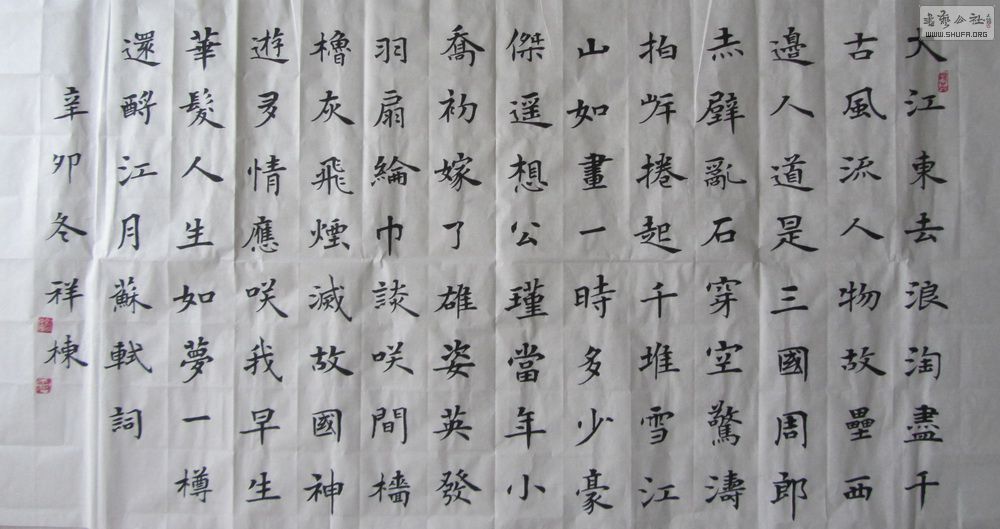 大江東去浪淘盡千
古風流人物故壘西
邊人道是三國周郎
赤壁亂石穿空驚濤
拍岸捲起千堆雪江
山如畫一時多少豪
傑遥想公瑾當年小
喬初嫁了雄姿英發
羽扇綸巾談咲間檣
櫓灰飛煙滅故國神
遊多情應咲我早生
華髮人生如夢一樽
還酹江月蘇軾詞
辛卯冬祥棟
WWW.SHUFA.ORG